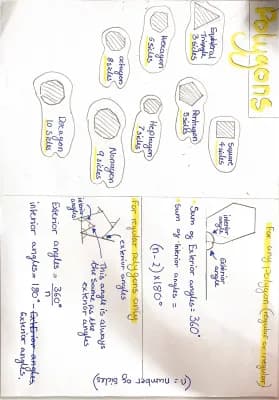 Polygons
Equilateral
Triangle
3 sides
Square
4 sides
Pentagon
5 sides
Hexagon
6 sides
Heptagon
7 sides
octagon
8 sides
Nonagon
9 sides
Decagon
10 sides
For any polygon (regular or irregular)
interior
angle
exterior
angle
Sum of Exterior angles = 360°
Sum of interior angles =
(n-2) × 180°
(n = number of sides)
For regular polygons only:
interior
angles
exterior angles
This angle is always
the same as the
exterior angles
Exterior angles = 360°
n
interior angles = 180° - Exterior angles
Exterior angles.